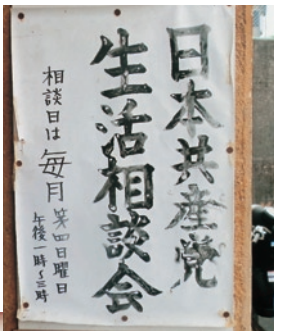 日本共産党
生活相談会
相談日は毎月第四日曜日
午後一時~三時